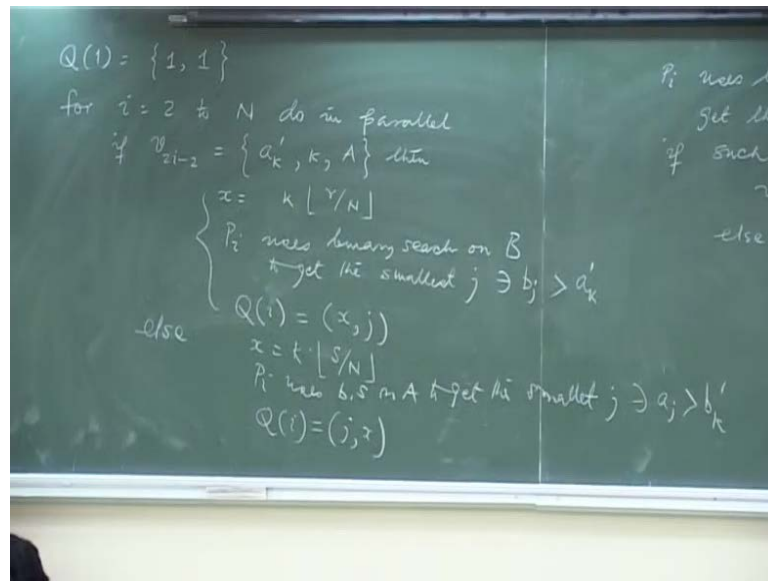 Q(1) = {1, 1}
for i = 2 to N do in parallel
if v₂ᵢ₋₂ = {a'ₖ, k, A} then
x = k ⌊r/N⌋
Pᵢ uses binary search on B
to get the smallest j ∋ bⱼ > a'ₖ
Q(i) = (x, j)
else
x = k · ⌊s/N⌋
Pᵢ uses b.s on A to get the smallest j ∋ aⱼ > b'ₖ
Q(i) = (j, x)
Pᵢ uses
get
if such
else